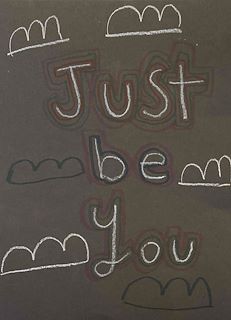 Just
be
You